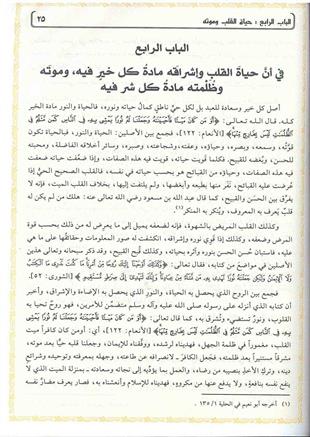 الباب الرابع : حياة القلب وموته
٢٥
الباب الرابع
في أنَّ حياةَ القلبِ وإشراقَه مادةُ كل خيرٍ فيه، وموتَه
وظُلْمتَه مادةُ كل شر فيه
أصل كل خير وسعادة للعبد بل لكل حيٍّ ناطقٍ كمالُ حياته ونوره، فالحياة والنور مادة الخير
كله. قال الله تعالى: ﴿أَوَ مَن كَانَ مَيْتًا فَأَحْيَيْنَاهُ وَجَعَلْنَا لَهُ نُورًا يَمْشِي بِهِ فِي النَّاسِ كَمَن مَّثَلُهُ فِي
الظُّلُمَاتِ لَيْسَ بِخَارِجٍ مِّنْهَا﴾ [الأنعام: ١٢٢]، فجمع بين الأصلين: الحياة والنور، فبالحياة تكون
قوَّته، وسمعه، وبصره، وحياؤه، وعفته، وشجاعته، وصبره، وسائر أخلاقه الفاضلة، ومحبته
للحسن، وبغضه للقبيح. فكلما قويت حياته، قويت فيه هذه الصفات، وإذا ضعفت حياته ضعفت
فيه هذه الصفات، وحياؤه من القبائح هو بحسب حياته في نفسه، فالقلب الصحيح الحيُّ إذا
عُرضت عليه القبائح، نفَر منها بطبعه وأبغضها، ولم يلتفت إليها، بخلاف القلب الميت، فإنه لا
يفرق بين الحسَن والقبيح، كما قال عبد الله بن مسعود رضي الله تعالى عنه: هلك من لم يكن له
قلبٌ يَعرف به المعروف، ويُنكر به المنكر(١).
وكذلك القلب المريض بالشهوة، فإنه لضعفه يميل إلى ما يعرض له من ذلك بحسب قوة
المرض وضعفه، وكذلك إذا قوي نوره وإشراقه، انكشفت له صور المعلومات وحقائقُها على ما هي
عليه، فاستبان حُسن الحسن بنوره وآثره بحياته، وكذلك قُبح القبيح، وقد ذكر سبحانه وتعالى هذين
الأصلين في مواضع من كتابه، فقال تعالى: ﴿وَكَذَلِكَ أَوْحَيْنَا إِلَيْكَ رُوحًا مِّنْ أَمْرِنَا مَا كُنتَ تَدْرِي مَا الْكِتَابُ
وَلَا الْإِيمَانُ وَلَكِن جَعَلْنَاهُ نُورًا نَّهْدِي بِهِ مَن نَّشَاءُ مِنْ عِبَادِنَا وَإِنَّكَ لَتَهْدِي إِلَى صِرَاطٍ مُّسْتَقِيمٍ﴾ [الشورى: ٥٢].
فجمع بين الروح الذي يحصل به الحياة، والنور الذي يحصل به الإضاءة والإشراق، وأخبر
أن كتابه الذي أنزله على رسوله صلى الله عليه وآله وسلم متضمنٌ للأمرين، فهو روحٌ تحيا به
القلوب، ونورٌ تستضيء وتُشرق به، كما قال تعالى: ﴿أَوَ مَن كَانَ مَيْتًا فَأَحْيَيْنَاهُ وَجَعَلْنَا لَهُ نُورًا يَمْشِي
بِهِ فِي النَّاسِ كَمَن مَّثَلُهُ فِي الظُّلُمَاتِ لَيْسَ بِخَارِجٍ مِّنْهَا﴾ [الأنعام: ١٢٢]، أي: أومن كان كافرا ميت
القلب، مغموراً في ظلمة الجهل، فهديناه لرشده، ووفَّقناه للإيمان، وجعلنا قلبه حيًّا بعد موته،
مشرقاً مستنيراً بعد ظلمته، فجعل الكافر ـ لانصرافه عن طاعته، وجهله بمعرفته وتوحيده وشرائع
دينه، وترك الأخذ بنصيبه من رضاه، والعمل بما يؤديه إلى نجاته وسعادته ـ بمنزلة الميت الذي لا
ينفع نفسه بنافعة، ولا يدفع عنها من مكروه، فهديناه للإسلام وأنعشناه به، فصار يعرف مضارَّ نفسه
(١) أخرجه أبو نعيم في الحلية ١/ ١٣٥.